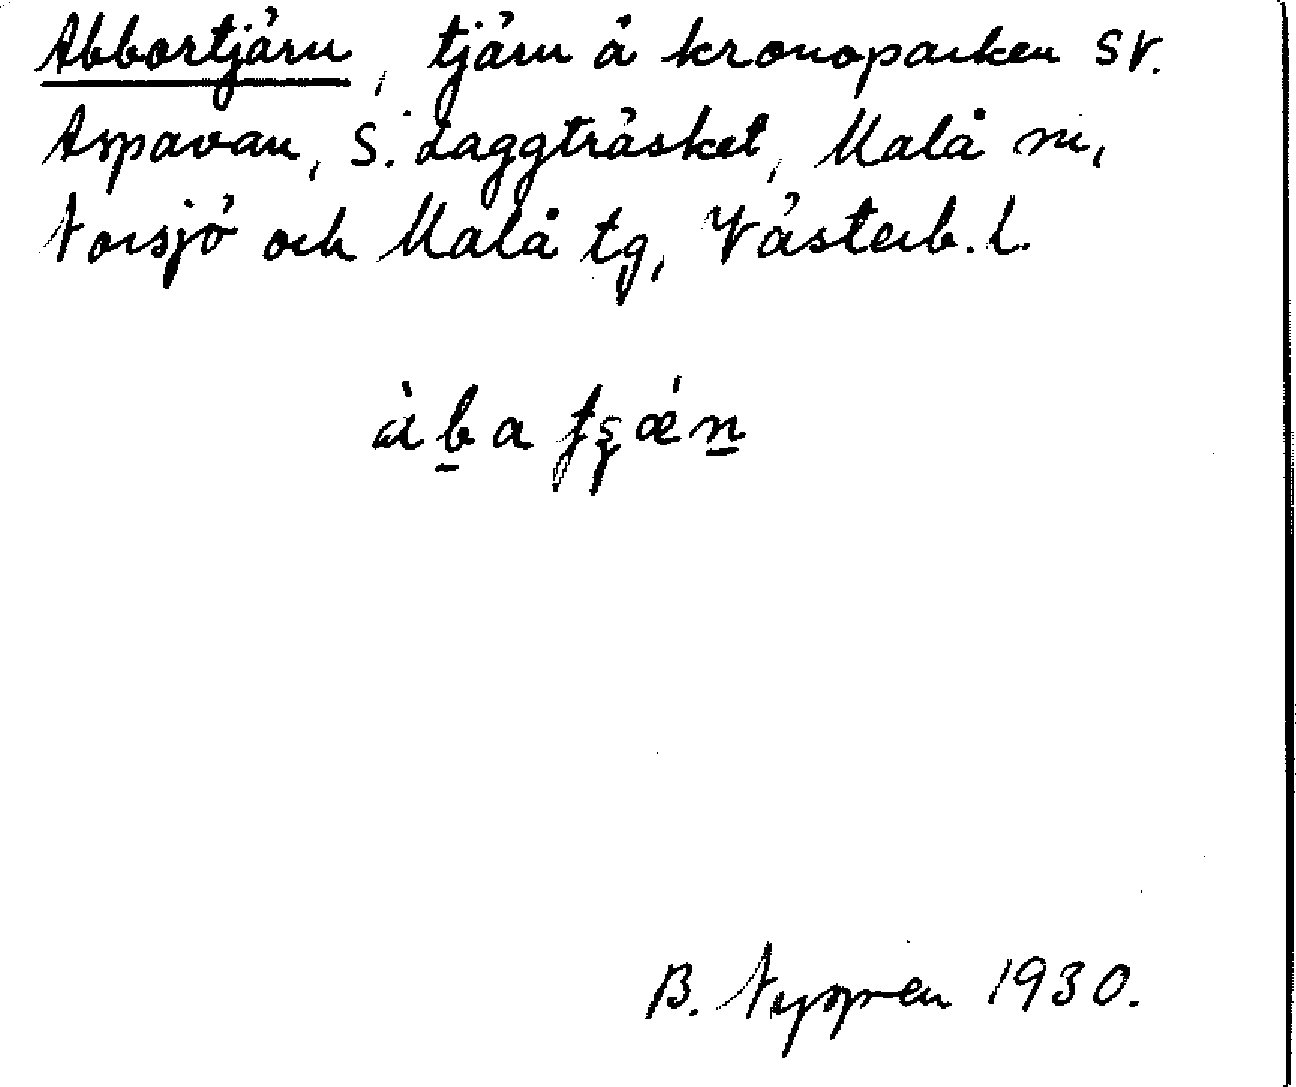 Abbortjärn, tjärn å kronoparken SV.
Aspavan, S. Laggträsket, Malå sn,
Norsjö och Malå tg, Västerb. l.
àb̲a tʂǽn̲
B. 1930.